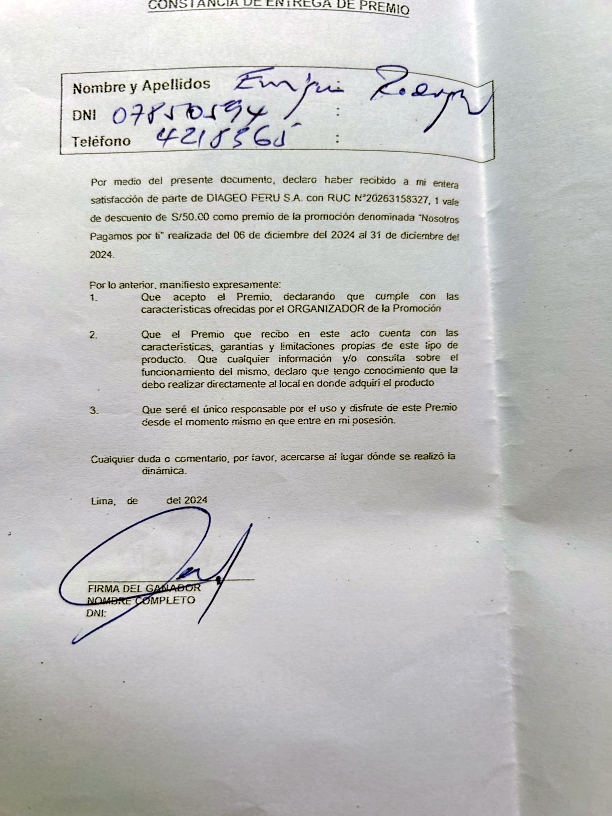 CONSTANCIA DE ENTREGA DE PREMIO
Nombre y Apellidos Enrique
DNI 07850594 :
Teléfono 4218565 :
Por medio del presente documento, declaro haber recibido a mi entera
satisfacción de parte de DIAGEO PERU S.A. con RUC N°20263158327, 1 vale
de descuento de S/50.00 como premio de la promoción denominada "Nosotros
Pagamos por ti" realizada del 06 de diciembre del 2024 al 31 de diciembre del
2024.
Por lo anterior, manifiesto expresamente:
1. Que acepto el Premio, declarando que cumple con las
características ofrecidas por el ORGANIZADOR de la Promoción
2. Que el Premio que recibo en este acto cuenta con las
características, garantías y limitaciones propias de este tipo de
producto. Que cualquier información y/o consulta sobre el
funcionamiento del mismo, declaro que tengo conocimiento que la
debo realizar directamente al local en donde adquirí el producto
3. Que seré el único responsable por el uso y disfrute de este Premio
desde el momento mismo en que entre en mi posesión.
Cualquier duda o comentario, por favor, acercarse al lugar dónde se realizó la
dinámica.
Lima, de del 2024
FIRMA DEL GANADOR
NOMBRE COMPLETO
DNI: